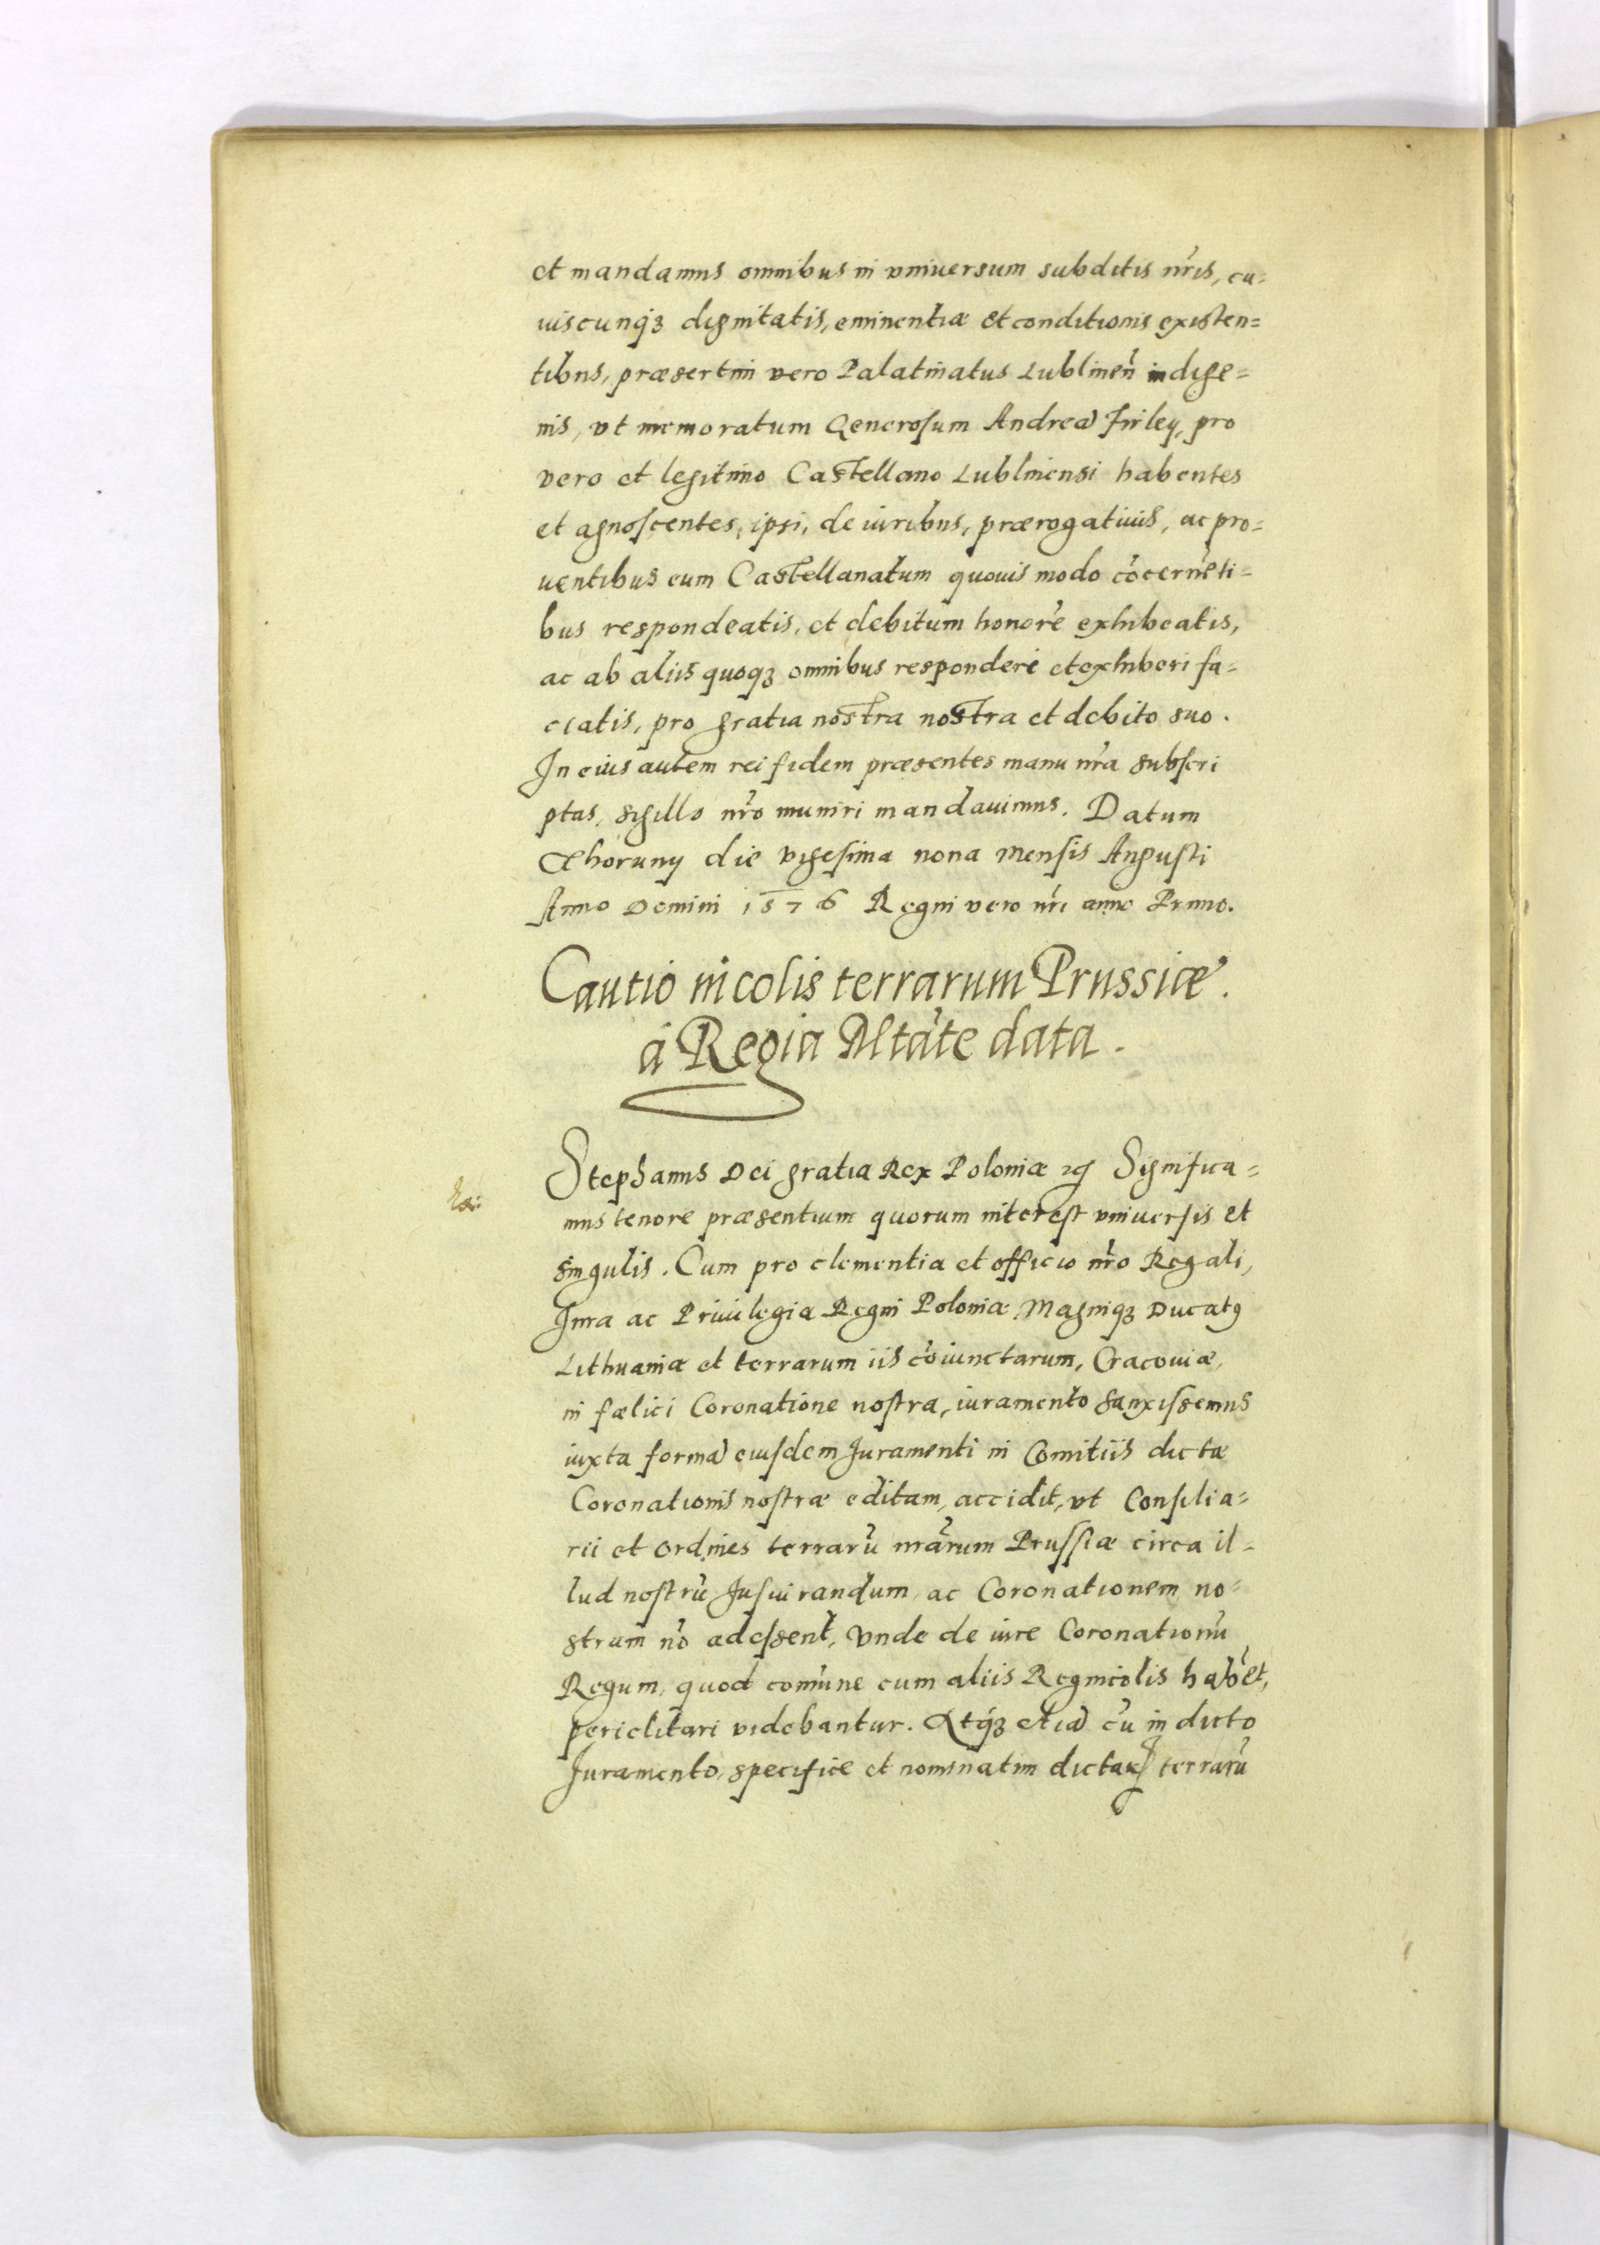 et mandamus omnibus in vniuersum subditis nr̃is, cu=
iuscunq₃ dignitatis, eminentiæ et conditionis existen=
tibus, præsertim vero Palatinatus Lublineñ indige=
nis, vt memoratum Generosum Andreã Firley, pro
vero et legitimo Castellano Lublinensi habentes
et agnoscentes, ipsi, de iuribus, prærogatiuis, ac pro=
uentibus eum Castellanatum quouis modo cõcernẽti=
bus respondeatis, et debitum honorẽ exhibeatis,
ac ab aliis quoq₃ omnibus responderi et exhiberi fa=
ciatis, pro gratia nostra nostra et debito suo.
In eius autem rei fidem præsentes manu nr̃a subscri
ptas, sigillo nr̃o muniri mandauimus. Datum
Thoruny die vigesima nona mensis Augusti
Anno Domini 1576 Regni vero nr̃i anno Primo.
Cautio incolis terrarum Prussiæ.
á Regia Mtãte data.
Stephanus Dei gratia Rex Poloniæ ⁊c Significa=
mus tenore præsentium quorum interest vniuersis et
singulis. Cum pro clementia et officio nr̃o Regali,
Iura ac Priuilegia Regni Poloniæ, Magniq₃ Ducatꝰ
Lithuaniæ et terrarum iis cõiunctarum, Cracouiæ,
in fælici Coronatione nostra, iuramento sanxissemus
iuxta formã eiusdem Iuramenti in Comitiis dictæ
Coronationis nostræ editam, accidit, vt Consilia=
rii et Ordines terrarũ nr̃arum Prussiæ circa il=
lud nostrũ Iusiurandum, ac Coronationem no=
stram nõ adessent, Vnde de iure Coronationũ
Regum, quod comũne cum aliis Regnicolis habẽt,
periclitari videbantur. Atq₃ etiã cũ in dicto
Iuramento, specifice et nominatim dictaꝝ terrarũ